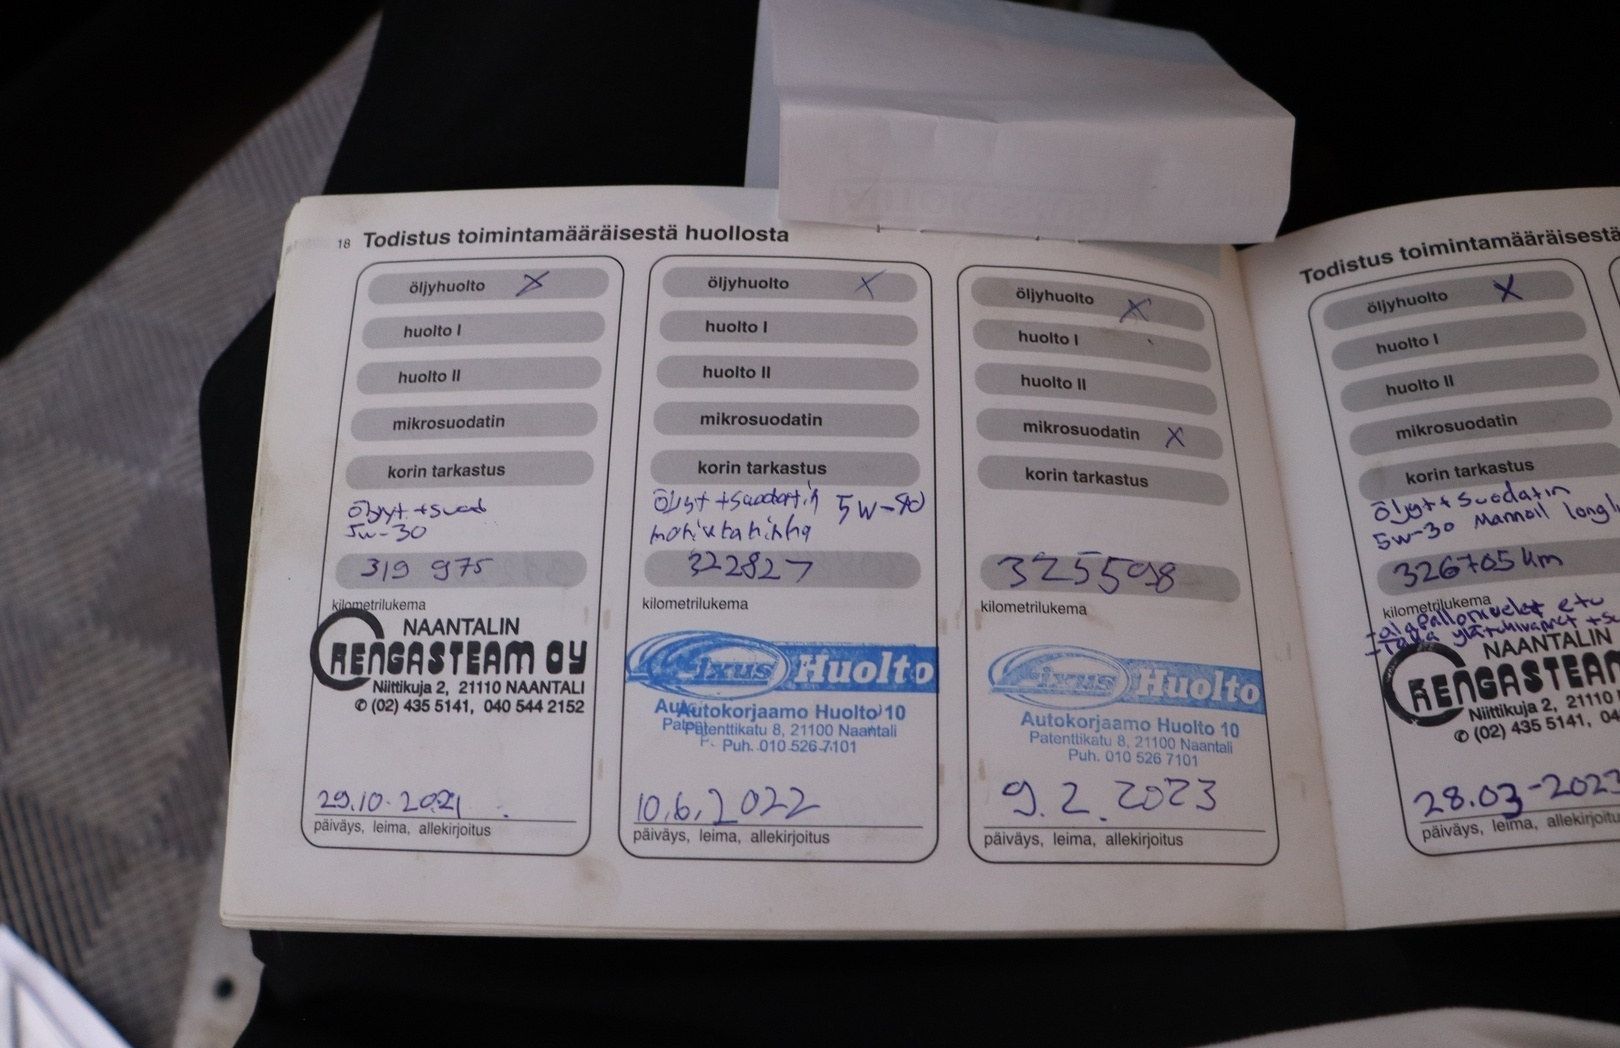 18 Todistus toimintamääräisestä huollosta
öljyhuolto X
huolto I
huolto II
mikrosuodatin
korin tarkastus
öljyt + suod
5w-30
319 975
kilometrilukema
NAANTALIN
RENGASTEAM OY
Niittikuja 2, 21110 NAANTALI
✆ (02) 435 5141, 040 544 2152
29.10.2021
päiväys, leima, allekirjoitus
öljyhuolto X
huolto I
huolto II
mikrosuodatin
korin tarkastus
öljyt + suodatin 5w-40
322827
kilometrilukema
Fixus Huolto
Autokorjaamo Huolto 10
Patenttikatu 8, 21100 Naantali
Puh. 010 526 7101
10.6.2022
päiväys, leima, allekirjoitus
öljyhuolto X
huolto I
huolto II
mikrosuodatin X
korin tarkastus
325598
kilometrilukema
Fixus Huolto
Autokorjaamo Huolto 10
Patenttikatu 8, 21100 Naantali
Puh. 010 526 7101
9.2.2023
päiväys, leima, allekirjoitus
Todistus toimintamääräisestä
öljyhuolto X
huolto I
huolto II
mikrosuodatin
korin tarkastus
öljyt + suodatin
5w-30 Mannol longl
326705 km
kilometrilukema
etu
NAANTALIN
RENGASTEAM
Niittikuja 2, 21110
✆ (02) 435 5141, 04
28.03-2023
päiväys, leima, allekirjoitus